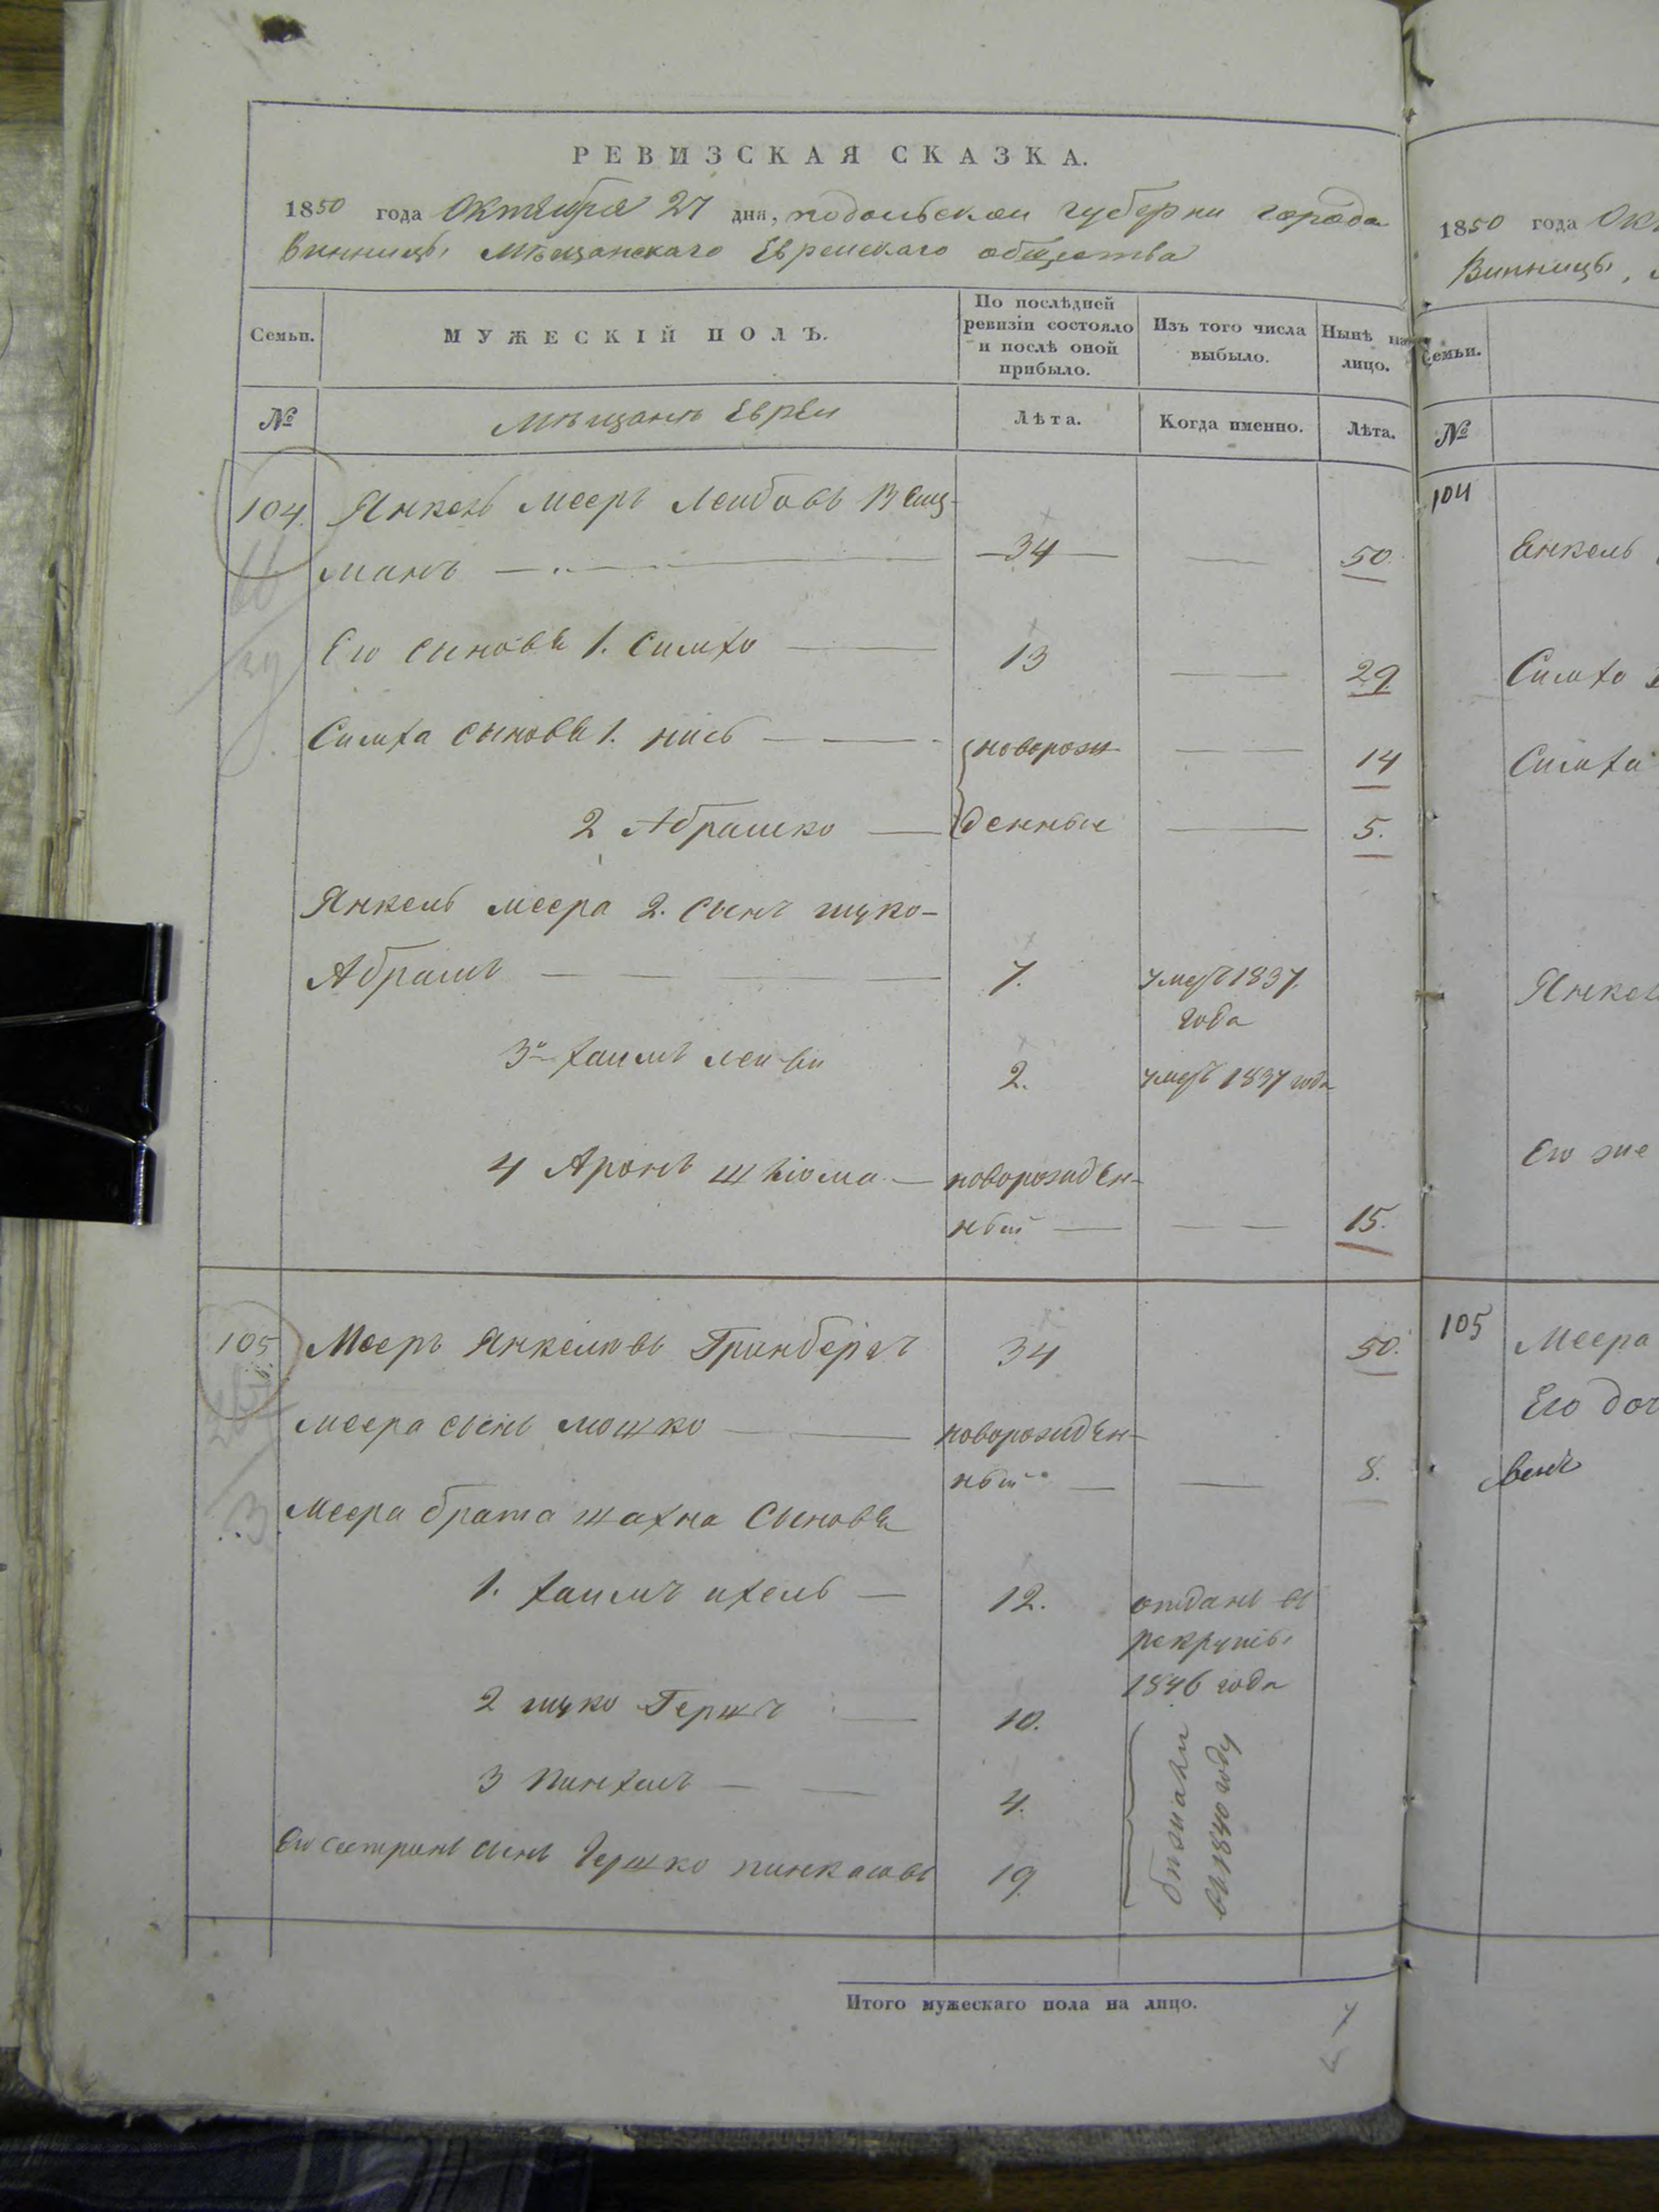 РЕВИЗСКАЯ СКАЗКА.
1850 года Октября 27 дня, подольской губерни города
Винницы Мѣщанскаго Еврейскаго общества
Семьи.
МУЖЕСКІЙ ПОЛЪ.
По послѣдней
ревизіи состояло
и послѣ оной
прибыло.
Изъ того числа
выбыло.
Нынѣ на
лицо.
№
Мѣщанѣ Евреи
Лѣта.
Когда именно.
Лѣта.
104. Янкель Мееръ Лейбовъ Вейц-
манъ 34 50.
Его сыновья 1. Симхо 13 29.
Симха сыновья 1. нись новорож- 14
2 Абрашко денные 5.
Янкель меера 2. сынъ ицко-
Абрамъ 7. умеръ 1837.
года
3й хаимъ лейби 2. умеръ 1837 года
4 Аронъ шліома новорожден-
ный 15.
105 Мееръ Янкелювъ Гринбергъ 34 50.
меера сынъ мошко новорожден-
ный 8.
Меера брата шахна Сыновья
1. хаимъ ихель 12. отданъ въ
рекруты
1846 года
2 ицко Гершъ 10.
3 Пинхасъ 4.
Его сестринъ сынъ Гершко пинкасовъ 19.
бѣжали
въ 1840 году
Итого мужескаго пола на лицо.
1850 года Ок
Винницы,
Семьи.
№
104
Янкель
Симхо
Симха
Янкел
Его же
105 Меера
Его доч